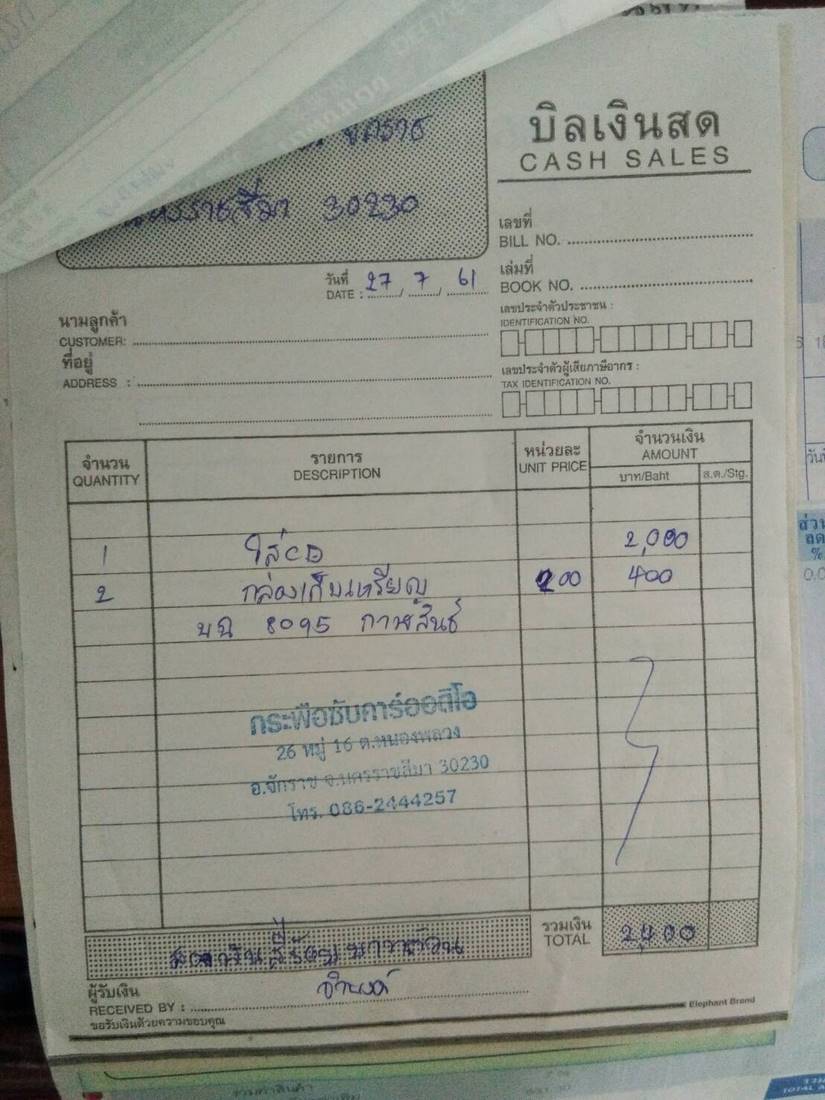 บิลเงินสด
CASH SALES
จักราช
นครราชสีมา 30230
เลขที่
BILL NO.
เล่มที่
BOOK NO.
วันที่ 27 / 7 / 61
DATE :
นามลูกค้า
CUSTOMER:
ที่อยู่
ADDRESS :
เลขประจำตัวประชาชน :
IDENTIFICATION NO.
เลขประจำตัวผู้เสียภาษีอากร :
TAX IDENTIFICATION NO.
จำนวน รายการ หน่วยละ จำนวนเงิน
QUANTITY DESCRIPTION UNIT PRICE AMOUNT
บาท/Baht ส.ต./Stg.
1 ใส่CD 2,000
2 กล่องเก็บเหรียญ 200 400
บฉ 8095 กาฬสินธุ์
กระพือซับคาร์ออดิโอ
26 หมู่ 16 ต.หนองพลวง
อ.จักราช จ.นครราชสีมา 30230
โทร. 086-2444257
สองพันสี่ร้อยบาทถ้วน
รวมเงิน
TOTAL 2,400
ผู้รับเงิน
RECEIVED BY :
ขอรับเงินด้วยความขอบคุณ
Elephant Brand
รวมค่าสินค้า